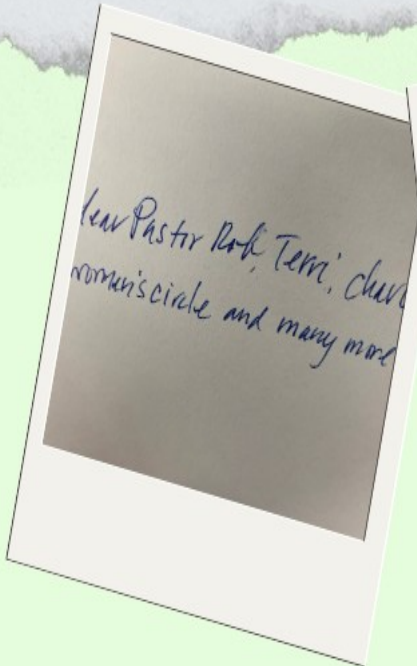 Dear Pastor Rob, Terri,
women's circle and many more